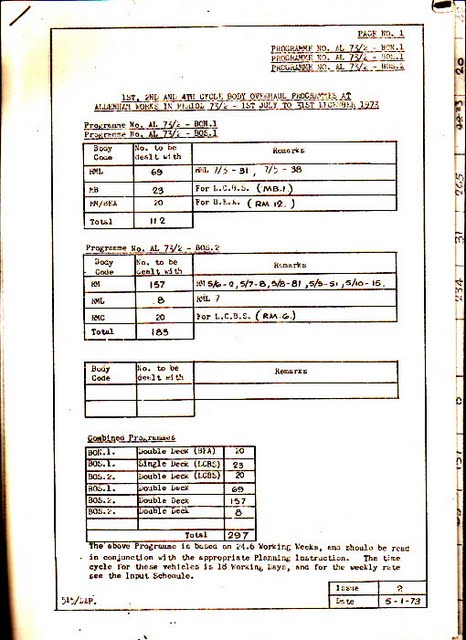 PAGE NO. 1
PROGRAMME NO. AL 73/2 - BON.1
PROGRAMME NO. AL 73/2 - BOS.1
PROGRAMME NO. AL 73/2 - BOS.2
1ST, 2ND AND 4TH CYCLE BODY OVERHAUL PROGRAMMES AT
ALDENHAM WORKS IN PERIOD 73/2 - 1ST JULY TO 31ST DECEMBER 1973
Programme No. AL 73/2 - BON.1
Programme No. AL 73/2 - BOS.1
Body Code No. to be dealt with Remarks
RML 69 RML 7/3 - 31, 7/5 - 38
MB 23 For L.C.B.S. (MB.1)
RM/BEA 20 For B.E.A. (RM 12.)
Total 112
Programme No. AL 73/2 - BOS.2
Body Code No. to be dealt with Remarks
RM 157 RM 5/6-2, 5/7-8, 5/8-81, 5/9-51, 5/10-15.
RML 8 RML 7
RMC 20 For L.C.B.S. (RM.6.)
Total 185
Body Code No. to be dealt with Remarks
Combined Programmes
BON.1. Double Deck (BEA) 20
BOS.1. Single Deck (LCBS) 23
BOS.2. Double Deck (LCBS) 20
BOS.1. Double Deck 69
BOS.2. Double Deck 157
BOS.2. Double Deck 8
Total 297
The above Programme is based on 24.6 Working Weeks, and should be read
in conjunction with the appropriate Planning Instruction. The time
cycle for these vehicles is 18 Working Days, and for the weekly rate
see the Input Schedule.
Issue 2
Date 5-1-73
20
265
31
234